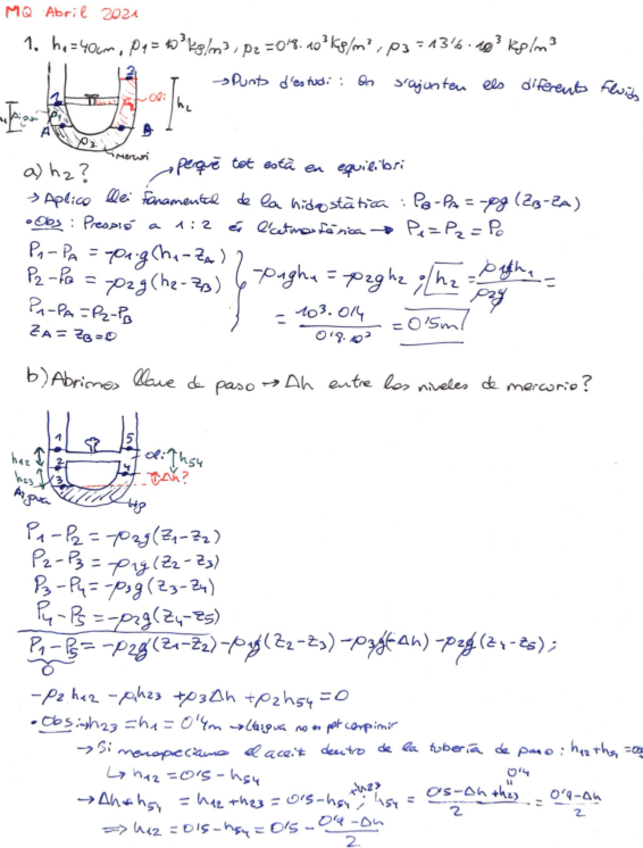 MQ Abril 2021
1. h1=40cm, ρ1=10³kg/m³, ρ2=0'8·10³kg/m³, ρ3=13'6·10³kg/m³
→Punts d'estudi: On s'ajunten els diferents fluids
2
1 oli h2
A B
ρ1 ρ2
ρ3
mercuri
a) h2? perquè tot està en equilibri
→Aplico llei fonamental de la hidrostàtica: PB-PA=-ρg(ZB-ZA)
•Obs: Pressió a 1:2 és l'atmosfèrica → P1=P2=P0
P1-PA=-ρ1·g(h1-ZA)
P2-PB=-ρ2g(h2-ZB)
P1-PA=P2-PB
ZA=ZB=0
-ρ1gh1=-ρ2gh2; h2=ρ1gh1/ρ2g=
=10³·0'4/0'8·10³=0'5m
b) Abrimos llave de paso → Δh entre los niveles de mercurio?
1 5
h12 oli h54
2 4
h23 Δh?
3
Aigua Hg
P1-P2=-ρ2g(Z1-Z2)
P2-P3=-ρ1g(Z2-Z3)
P3-P4=-ρ3g(Z3-Z4)
P4-P5=-ρ2g(Z4-Z5)
P1-P5=-ρ2g(Z1-Z2)-ρ1g(Z2-Z3)-ρ3g(-Δh)-ρ2g(Z4-Z5);
0
-ρ2h12-ρ1h23+ρ3Δh+ρ2h54=0
•Obs:→h23=h1=0'4m →L'aigua no es pot comprimir
→Si menospeciamos el aceit dentro de la tubería de paso: h12+h54=0'5
↳h12=0'5-h54
→Δh+h54=h12+h23=0'5-h54+h23; h54=0'5-Δh+h23/2=0'9-Δh/2
0'4
⇒h12=0'5-h54=0'5-0'9-Δh/2